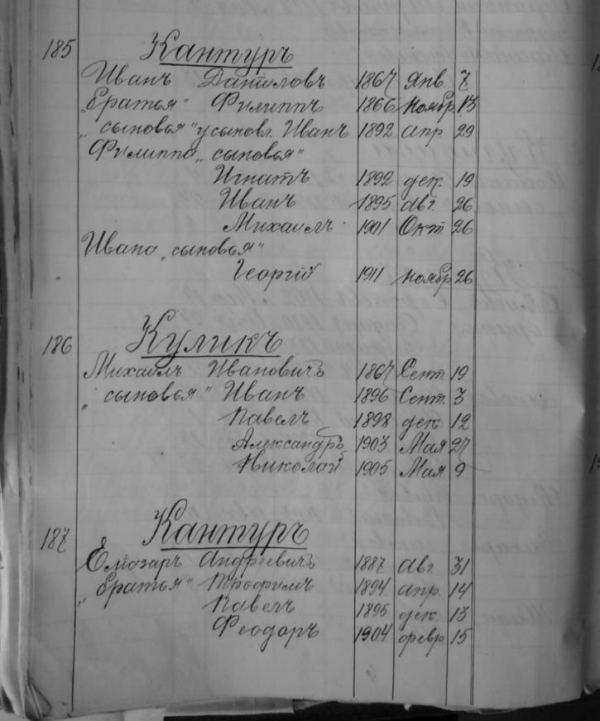 185 Кантуръ
Иванъ Даниловъ 1867 Янв. 7
„Братья" Филиппъ 1866 Ноябр 13
„сыновья" усыновл. Иванъ 1892 Апр 29
Филиппа „сыновья"
Игнатъ 1892 дек. 19
Иванъ 1895 Авг. 26
Михаилъ 1901 Окт 26
Ивана „сыновья"
Георгій 1911 Ноябр 26
186 Куликъ
Михаилъ Ивановичъ 1867 Сент 19
„сыновья" Иванъ 1896 Сент 3
Павелъ 1898 дек. 12
Александръ 1903 Мая 27
Николай 1905 Мая 9
187 Кантуръ
Елиозаръ Андреевичъ 1887 Авг 31
„Братья" Трофимъ 1894 Апр. 14
Павелъ 1895 дек. 13
Феодоръ 1904 февр 15